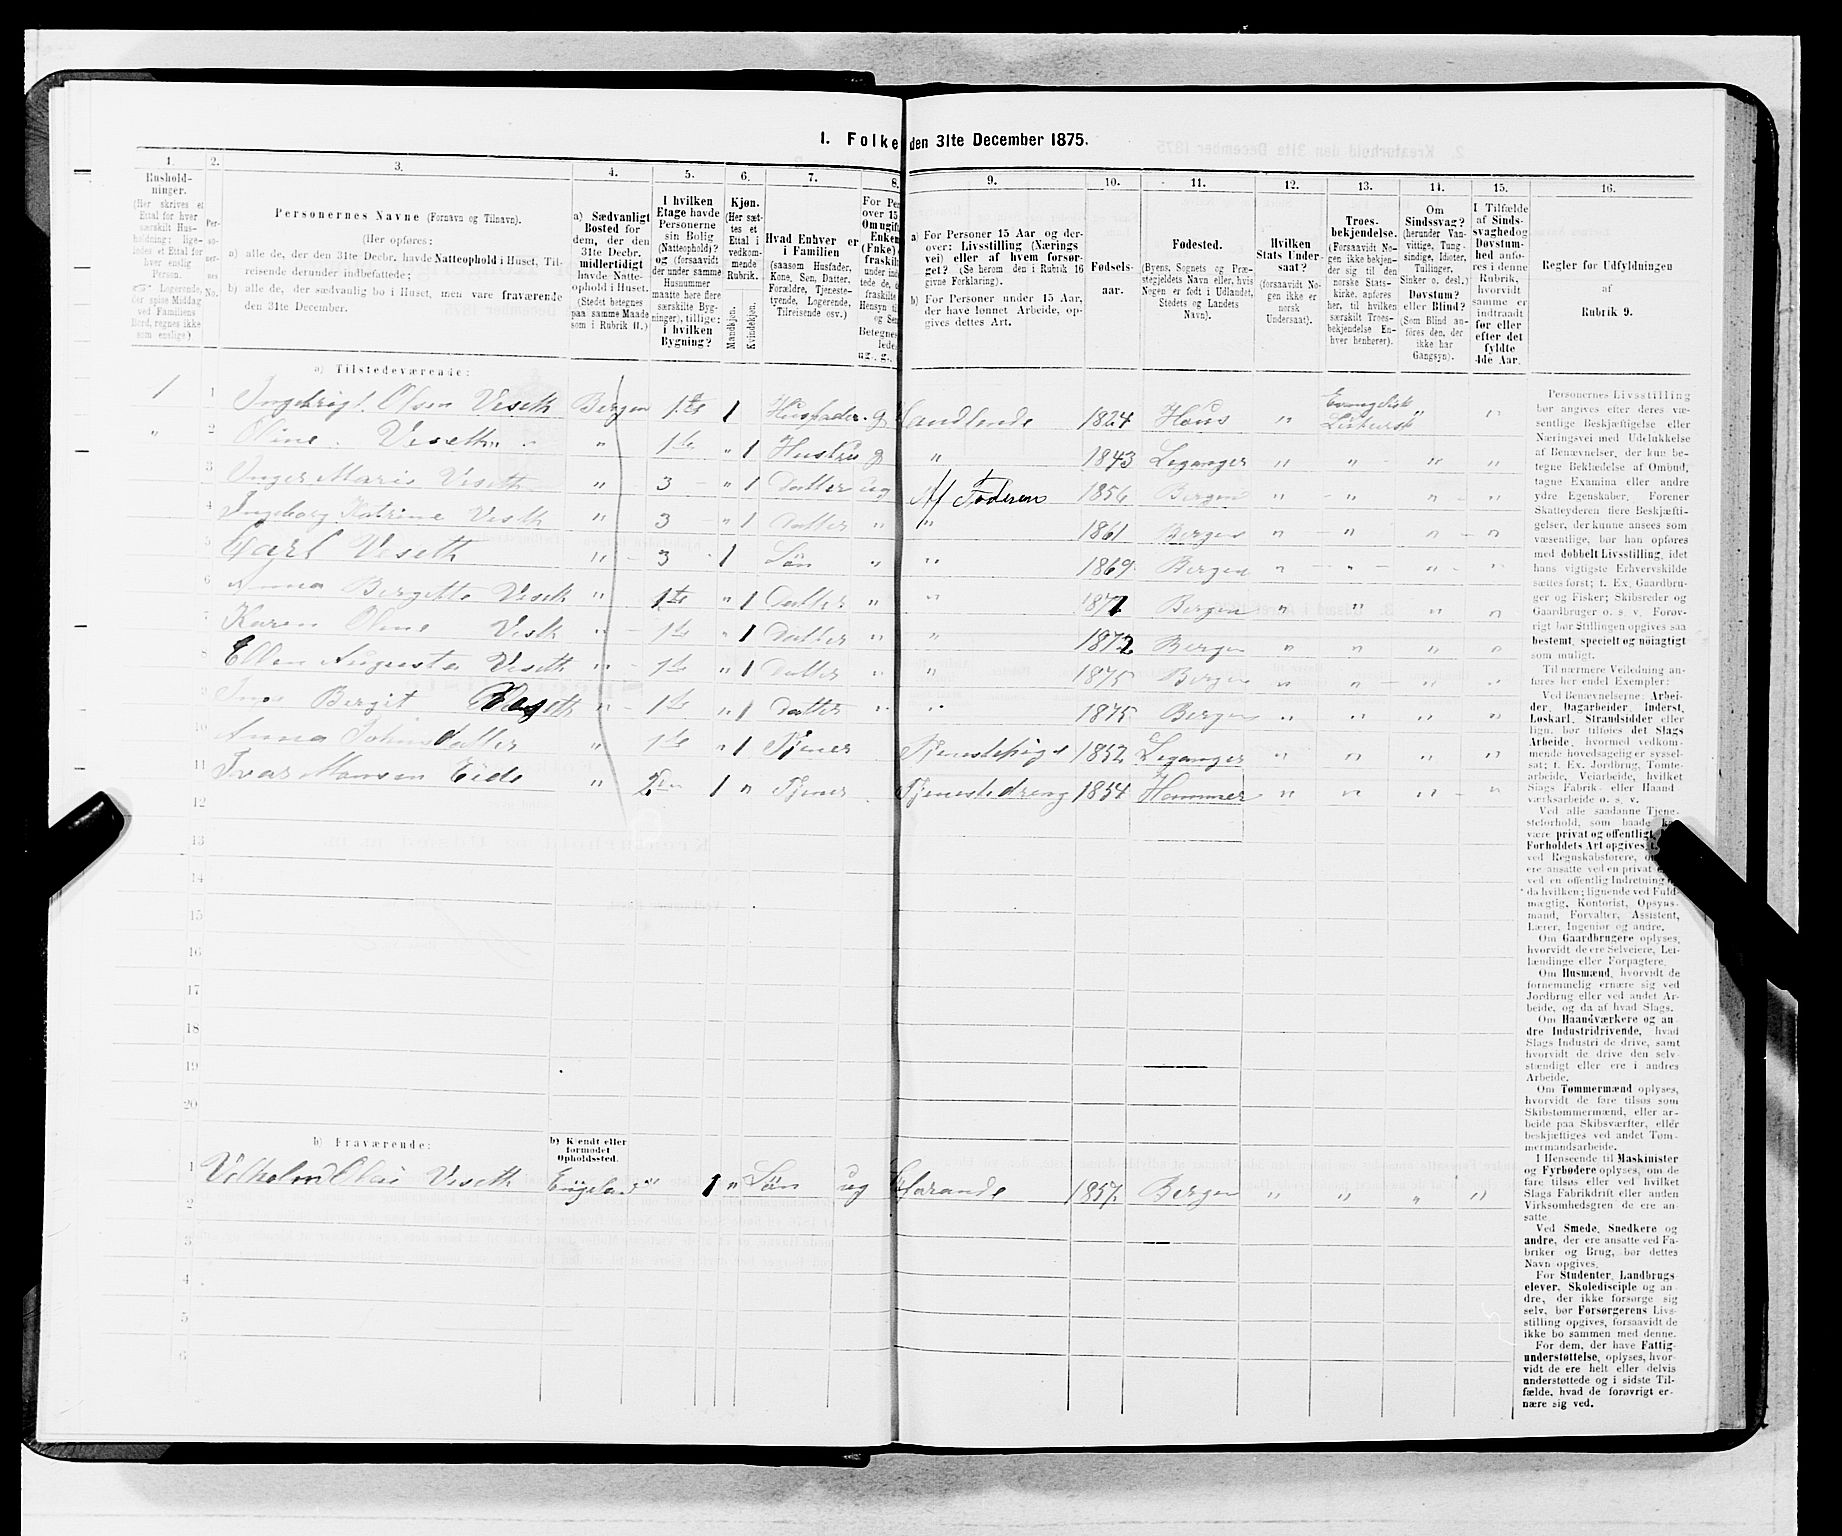 1. Folke den 31te December 1875.
1. 2. 3. 4. 5. 6. 7. 8. 9. 10. 11. 12. 13. 14. 15. 16.
Husholdninger.
(Her skrives et
Ettal for hver
særskilt Hus-
holdning; lige-
ledes et Ettal for
hver enslig
Person.
Logerende,
der spise Middag
ved Familiens
Bord, regnes ikke
som enslige.)
Per-
so-
ner-
nes
No.
Personernes Navne (Fornavn og Tilnavn).
(Her opføres:
a) alle de, der den 31te Decbr. havde Natteophold i Huset, Til-
reisende derunder indbefattede;
b) alle de, der sædvanlig bo i Huset, men vare fraværende
den 31te December.
a) Sædvanligt
Bosted for
dem, der den
31te Decbr.
midlertidigt
havde Natte-
ophold i Huset.
(Stedet betegnes
paa samme Maade
som i Rubrik 11.)
I hvilken
Etage havde
Personerne
sin Bolig
(Natteophold)?
og (forsaavidt
der under samme
Husnummer
maatte høre flere
særskilte Byg-
ninger), tillige:
i hvilken
Bygning?
Kjøn.
(Her sæt-
tes et
Ettal i
vedkom-
mende
Rubrik.
Mandkjøn.
Kvindekjøn.
Hvad Enhver er
i Familien
(saasom Husfader,
Kone, Søn, Datter,
Forældre, Tjeneste-
tyende, Logerende,
Tilreisende osv.)
For Pe
over 15
Om ugift
Enken
(Fnke)
fraskil
a) For Personer 15 Aar og der-
over: Livsstilling (Nærings
vei) eller af hvem forsør-
get? (Se herom den i Rubrik 16
givne Forklaring).
b) For Personer under 15 Aar,
der have lønnet Arbeide, op-
gives dettes Art.
Fødsels-
aar.
Fødested.
(Byens, Sognets og Præ-
stegjeldets Navn eller, hvis
Nogen er født i Udlandet,
Stedets og Landets
Navn).
Hvilken
Stats Under-
saat?
(forsaavidt No-
gen ikke er
norsk
Undersaat).
Troes-
bekjendelse.
(Forsaavidt No-
gen ikke bekjen-
der sig til den
norske Stats-
kirke, anføres
her, til hvilken
særskilt Troes-
bekjendelse En-
hver henhører).
Om
Sindssvag?
(herunder Van-
vittige, Tung-
sindige, Idioter,
Tullinger,
Sinker o. desl.)
Døvstum?
eller Blind?
(Som Blind an-
føres den, der
ikke har
Gangsyn).
I Tilfælde
af Sinds-
svaghed og
Døvstum-
hed anfø-
res i denne
Rubrik,
hvorvidt
samme er
indtraadt
før eller
efter det
fyldte
4de Aar.
Regler for Udfyldningen
af
Rubrik 9.
a) Tilstedeværende:
1 1 Ingebrigt Olsen Veseth Bergen 1ste 1 Husfader g Handlende 1824 Hous " Evangelisk Luthersk " "
" 2 Oline Veseth " 1ste " 1 Hustru g " 1843 Leganger " " " "
3 Inger Marie Veseth " 3 " 1 Datter ug Af Faderen 1856 Bergen " " " "
4 Ingeborg Katrine Veseth " 3 " 1 Datter " " 1861 Bergen " " " "
5 Carl Veseth " 3 1 Søn " " 1869 Bergen " " " "
6 Anna Bergitte Veseth " 1ste " 1 Datter " " 1871 Bergen " " " "
7 Karen Oline Veseth " 1ste " 1 Datter " " 1872 Bergen " " " "
8 Ellen Augusta Veseth " 1ste " 1 Datter " " 1875 Bergen " " " "
9 Bergit Veseth " 1ste " 1 Datter " " 1875 Bergen " " " "
10 Anna Johnsdatter " 1ste " 1 Tjener Tjenestepige 1852 Leganger " " " "
11 Ivar Monsen Eide " 2den 1 " Tjener Tjenestedreng 1854 Hammer " " " "
12
13
14
15
16
17
18
19
20
b) Fraværende:
b) Kjendt eller
formodet
Opholdssted.
1 Vilhelm Olai Veseth England 1 " Søn ug 1857 Bergen " " " "
2
3
4
5
6
Personernes Livsstilling
bør angives efter deres væ-
sentlige Beskjæftigelse eller
Næringsvei med Udelukkelse
af Benævnelser, der kun be-
tegne Beklædelse af Ombud,
tagne Examina eller andre
ydre Egenskaber. Forener
Skatteyderen flere Beskjæfti-
gelser, der kunne ansees som
væsentlige, bør han opføres
med dobbelt Livsstilling, idet
hans vigtigste Erhvervskilde
sættes først; f. Ex. Gaardbru-
ger og Fisker; Skibsreder og
Gaardbruger o. s. v. Forøv-
rigt bør Stillingen opgives saa
bestemt, specielt og nøiagtigt
som muligt.
Til nærmere Veiledning an-
føres her endel Exempler:
Ved Benævnelserne: Arbei-
der, Dagarbeider, Inderst,
Løskarl, Strandsidder eller
lign. bør tilføies det Slags
Arbeide, hvormed vedkom-
mende hovedsagelig er syssel-
sat; f. Ex. Jordbrug, Tomte-
arbeide, Veiarbeide, hvilket
Slags Fabrik- eller Haand
værksarbeide o. s. v.
Ved alle saadanne Tjene-
steforhold, som baade
være privat og offentligt,
Forholdets Art opgives,
ved Regnskabsførere,
ere ansatte ved en privat
ved en offentlig Indretning
da hvilken; lignende ved Fuld-
mægtig, Kontorist, Opsyns-
mand, Forvalter, Assistent,
Lærer, Ingeniør og andre.
Om Gaardbrugere oplyses,
hvorvidt de ere Selveiere, Lei-
lændinge eller Forpagtere.
Om Husmænd, hvorvidt de
fornemmelig ernære sig ved
Jordbrug eller ved andet Ar-
beide, og da af hvad Slags.
Om Haandværkere og an
dre Industridrivende, hvad
Slags Industri de drive, samt
hvorvidt de drive den selv-
stændigt eller ere i andres
Arbeide.
Om Tømmermænd oplyses,
hvorvidt de fare tilsøs som
Skibstømmermænd, eller ar-
beide paa Skibsværfter, eller
beskjæftiges ved andet Tøm-
mermandsarbeide.
I Henseende til Maskinister
og Fyrbødere oplyses, om de
fare tilsøs eller ved hvilket
Slags Fabrikdrift eller anden
Virksomhedsgren de ere an-
satte
Ved Smede, Snedkere og
andre, der ere ansatte ved Fa-
briker og Brug, bør dettes
Navn opgives.
For Studenter, Landbrugs
elever, Skoledisciple og an-
dre, der ikke forsørge sig
selv, bør Forsørgerens Livs-
stilling opgives, forsaavidt de
ikke bo sammen med denne.
For dem, der have Fattig-
understøttelse, oplyses, hvor-
vidt de ere helt eller delvis
understøttede og i sidste Til-
fælde, hvad de forøvrigt er-
nære sig ved.